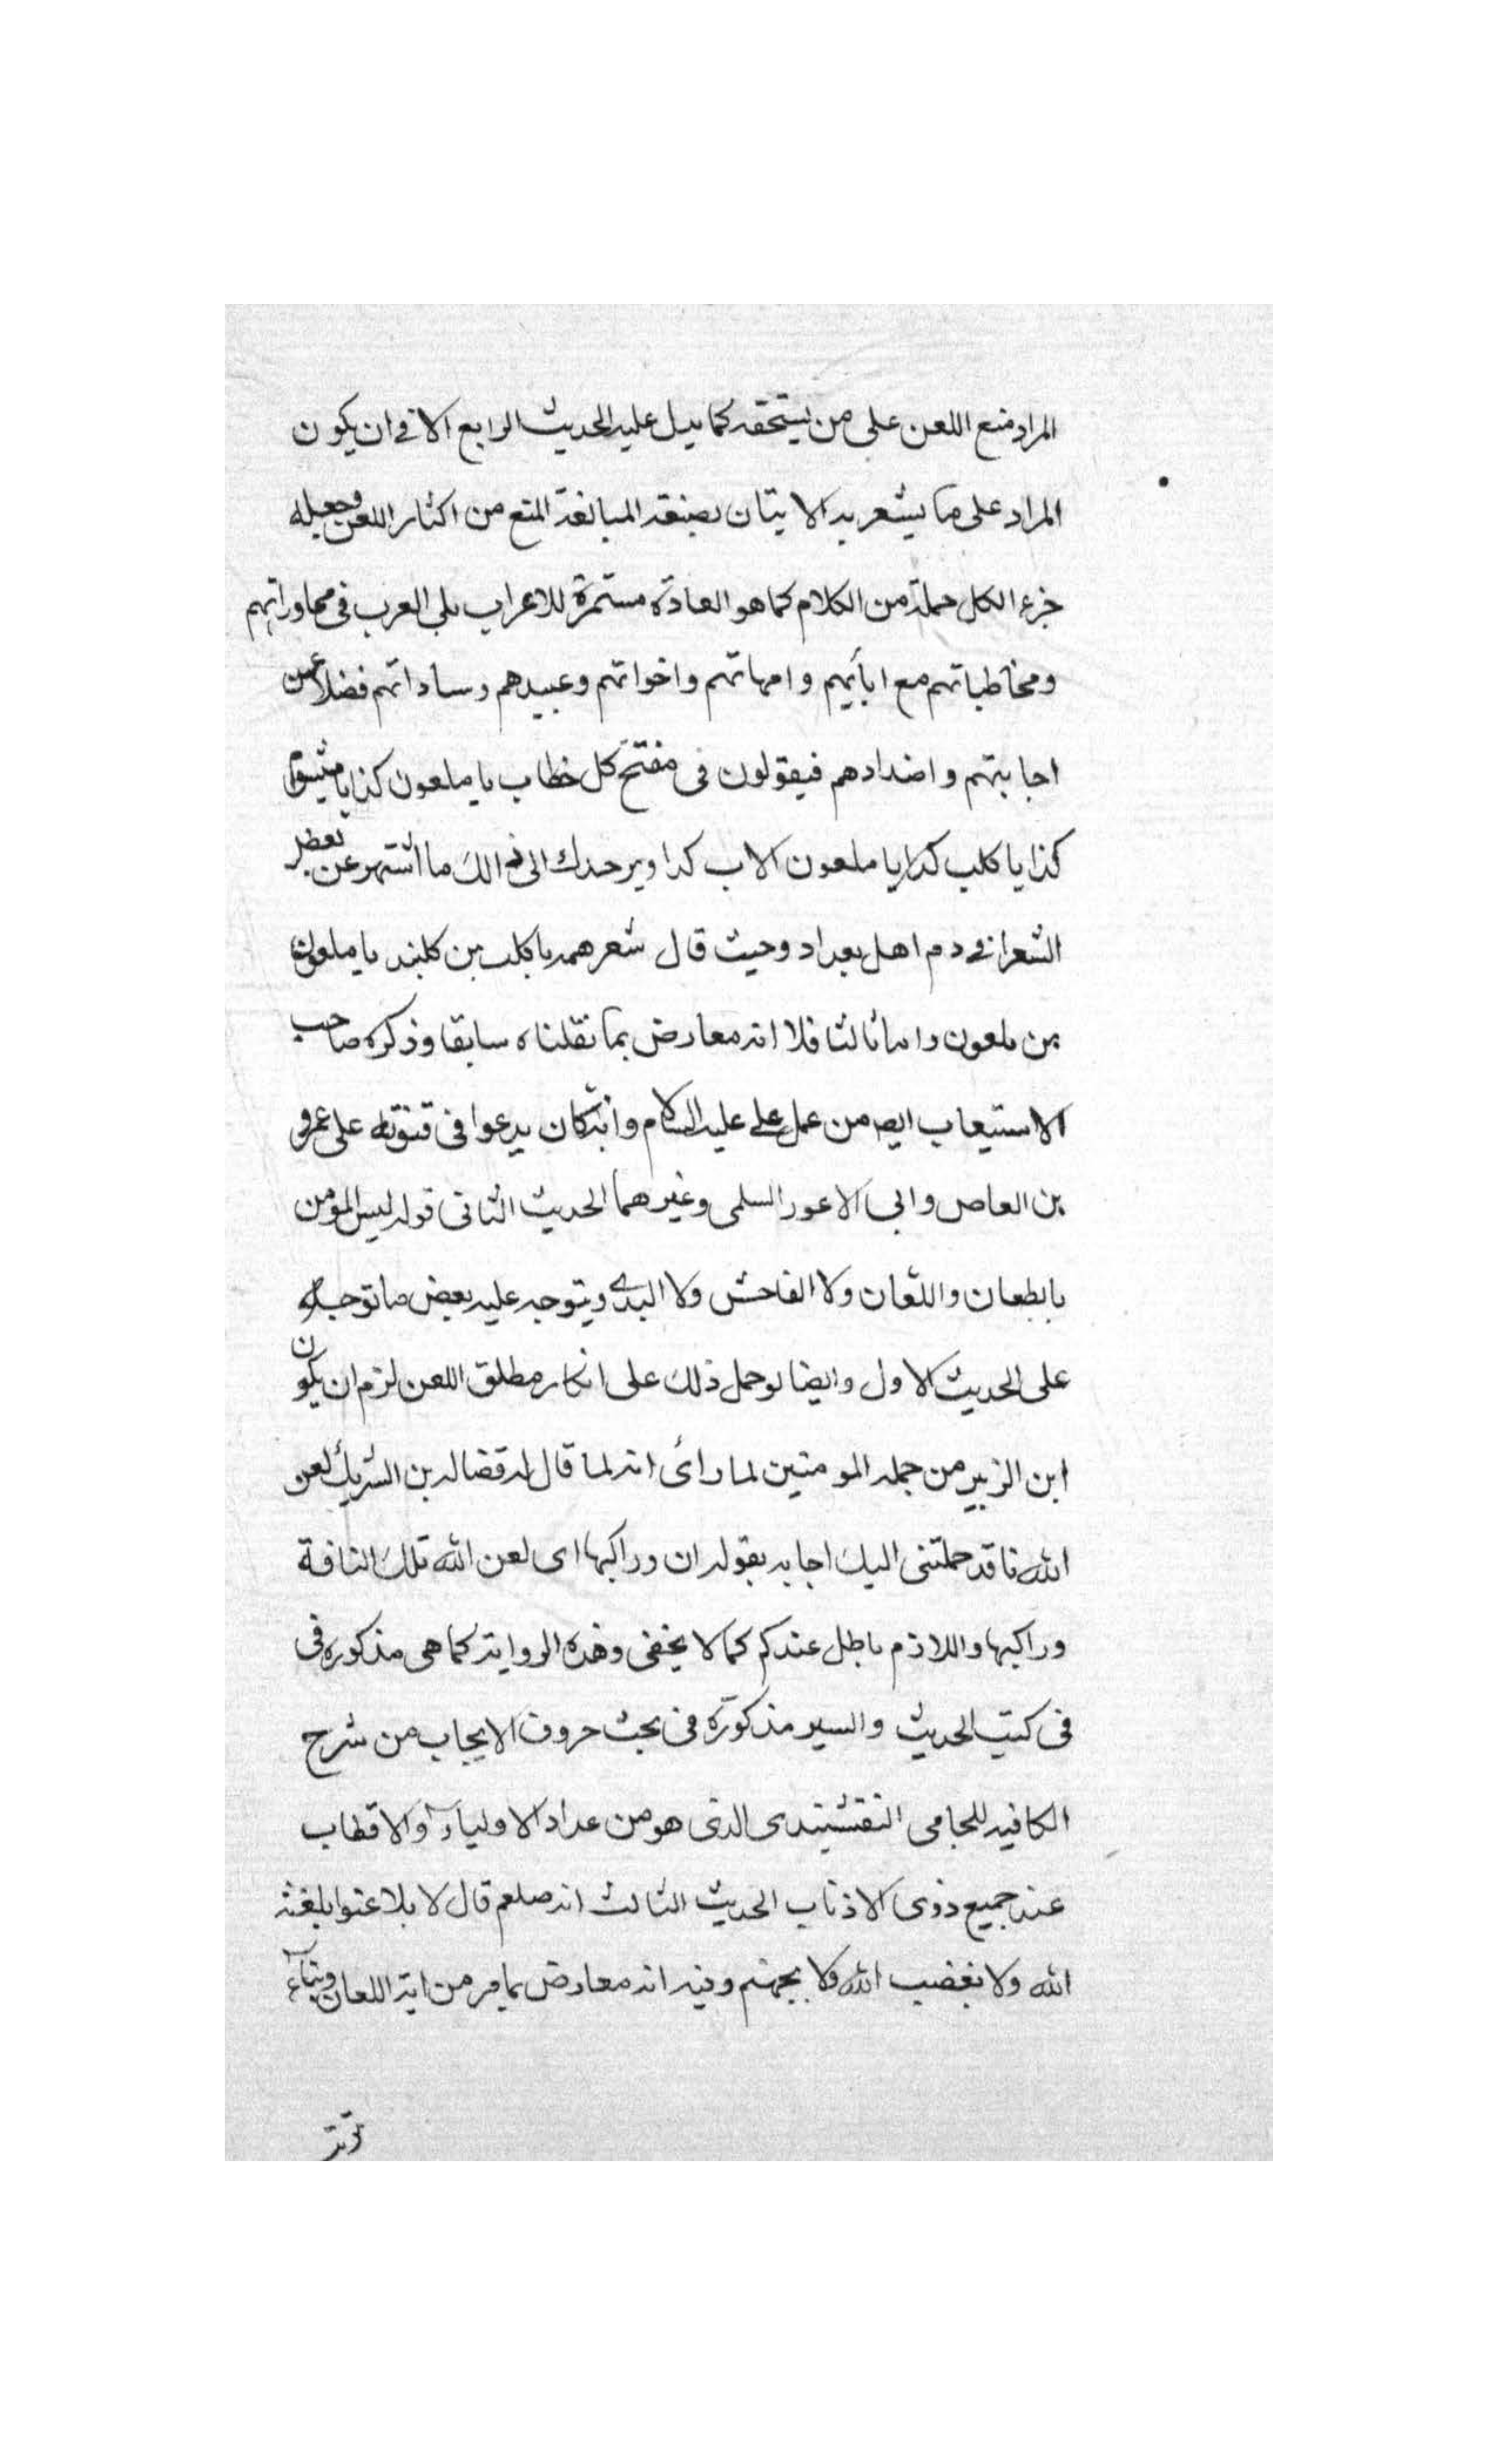 المراد منع اللعن على من يستحقه كما يدل عليه الحديث الرابع الا في ان يكون
المراد على ما يشعر به الايتان بصنعة المبالغة المنع من اكثار اللعن وجعله
جزء الكل جملة من الكلام كما هو العادة مستمرة للاعراب بلى العرب فى محاوراتهم
ومخاطباتهم مع ابائهم وامهاتهم واخواتهم وعبيدهم وساداتهم فضلا عن
اجابتهم واضدادهم فيقولون فى مفتح كل خطاب يا ملعون كذا يا
كذا يا كلب كذا يا ملعون الاب كذا ويرحدك الى ذالك ما اشتهر عن بعض
الشعرا في دم اهل بعداد وحيث قال شعر همه يا كلب بن كلبند يا ملعون
بن ملعون واما ثالثا فلا انه معارض بما نقلناه سابقا وذكره صاحب
الاستيعاب ايضه من عمل على عليه السلام وانه كان يدعوا فى قنوته على عمرو
بن العاص وابى الاعور السلمى وغيرهما الحديث الثانى قوله ليس المومن
بابطعان واللعان ولا الفاحش ولا البدى ويتوجه عليه بعض ما توجه
على الحديث الاول وايضا لو حمل ذلك على انكار مطلق اللعن لزم ان يكون
ابن الزبير من جمله المومنين لما رأى انه لما قال له قضاله بن الشريك لعن
الله ناقه حملتنى اليك اجابه بقوله ان وراكبها اى لعن الله تلك الناقة
وراكبها واللازم باطل عندكم كما لا يخفى وهذه الرواية كما هى مذكوره فى
فى كتب الحديث والسير مذكورة فى بحث حروف الايجاب من شرح
الكافيه للجامى النقشبندى الذى هو من عداد الاولياء والاقطاب
عند جميع ذوى الاذناب الحديث الثالث انه صلعم قال لا بلاعنوا بلغنه
الله ولا بغضب الله ولا بجهنم وفيه انه معارض بما مر من اية اللعان وبناء